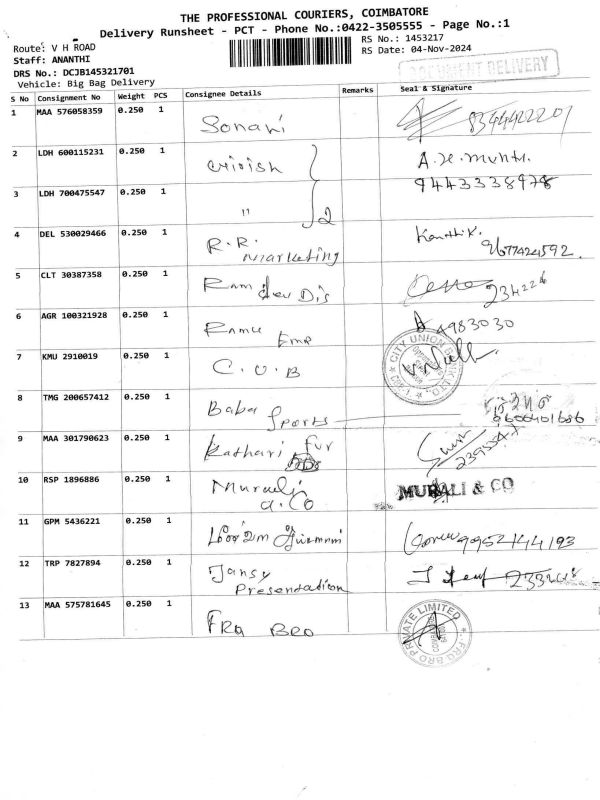 THE PROFESSIONAL COURIERS, COIMBATORE
Delivery Runsheet - PCT - Phone No.:0422-3505555 - Page No.:1
Route: V H ROAD
RS No.: 1453217
Staff: ANANTHI
RS Date: 04-Nov-2024
DRS No.: DCJB145321701
Vehicle: Big Bag Delivery
DOCUMENT DELIVERY
S No Consignment No Weight PCS Consignee Details Remarks Seal & Signature
1 MAA 576058359 0.250 1 Sonani 8344422207
2 LDH 600115231 0.250 1 A.H.
3 LDH 700475547 0.250 1 " 2 9443338978
4 DEL 530029466 0.250 1 R.R. Marketing Karthik. 9677424592
5 CLT 30387358 0.250 1 Ram dev Dis 234226
6 AGR 100321928 0.250 1 Ramu Emp 4983030
7 KMU 2910019 0.250 1 C.U.B CITY UNION BANK LTD.
8 TMG 200657412 0.250 1 Baba Sports 9600401686
9 MAA 301790623 0.250 1 Kathari Fur
10 RSP 1896886 0.250 1 Murali & Co MURALI & CO
11 GPM 5436221 0.250 1 9952144193
12 TRP 7827894 0.250 1 Jansy Presendation
13 MAA 575781645 0.250 1 FRG BRO FRG BRO PRIVATE LIMITED